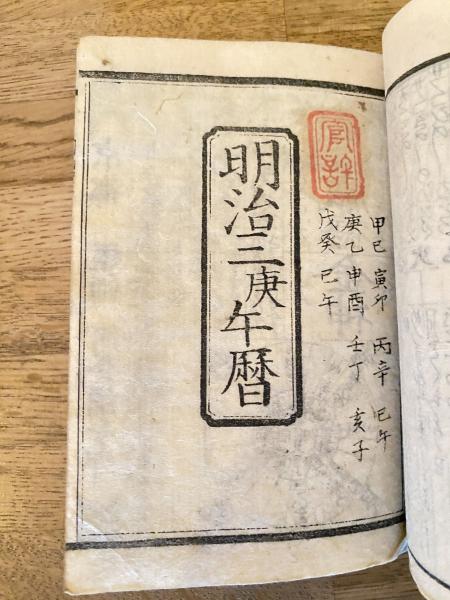 官許
甲己 寅卯 丙辛 巳午
庚乙 申酉 壬丁 亥子
戊癸 巳午
明治三庚午暦